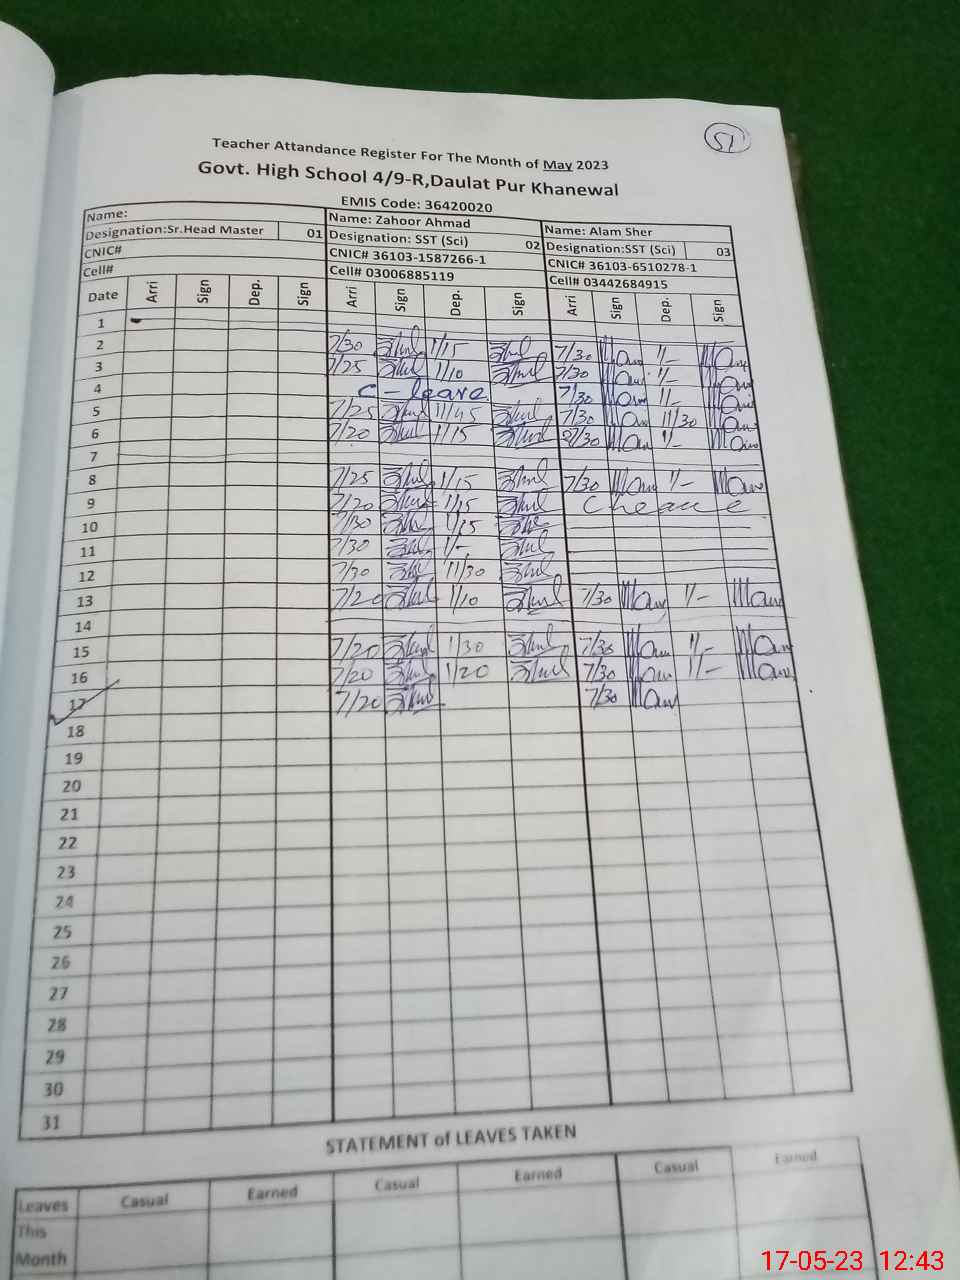 51
Teacher Attandance Register For The Month of May 2023
Govt. High School 4/9-R,Daulat Pur Khanewal
EMIS Code: 36420020
Name: Name: Zahoor Ahmad Name: Alam Sher
Designation:Sr.Head Master 01 Designation: SST (Sci) 02 Designation:SST (Sci) 03
CNIC# CNIC# 36103-1587266-1 CNIC# 36103-6510278-1
Cell# Cell# 03006885119 Cell# 03442684915
Date Arri Sign Dep. Sign Arri Sign Dep. Sign Arri Sign Dep. Sign
1
2 7/30 1/15 7/30 1/-
3 7/25 1/10 7/30 1/-
4 C-leave 7/30 1/-
5 7/25 11/45 7/30 11/30
6 7/20 1/15 7/30 1/-
7
8 7/25 1/15 7/30 1/-
9 7/20 1/15 C leave
10 7/30 1/15
11 7/30 1/-
12 7/30 11/30
13 7/20 1/10 7/30 1/-
14
15 7/20 1/30 7/30 1/-
16 7/20 1/20 7/30 1/-
17 7/20 7/30
18
19
20
21
22
23
24
25
26
27
28
29
30
31
STATEMENT of LEAVES TAKEN
Leaves Casual Earned Casual Earned Casual Earned
This
Month
17-05-23 12:43